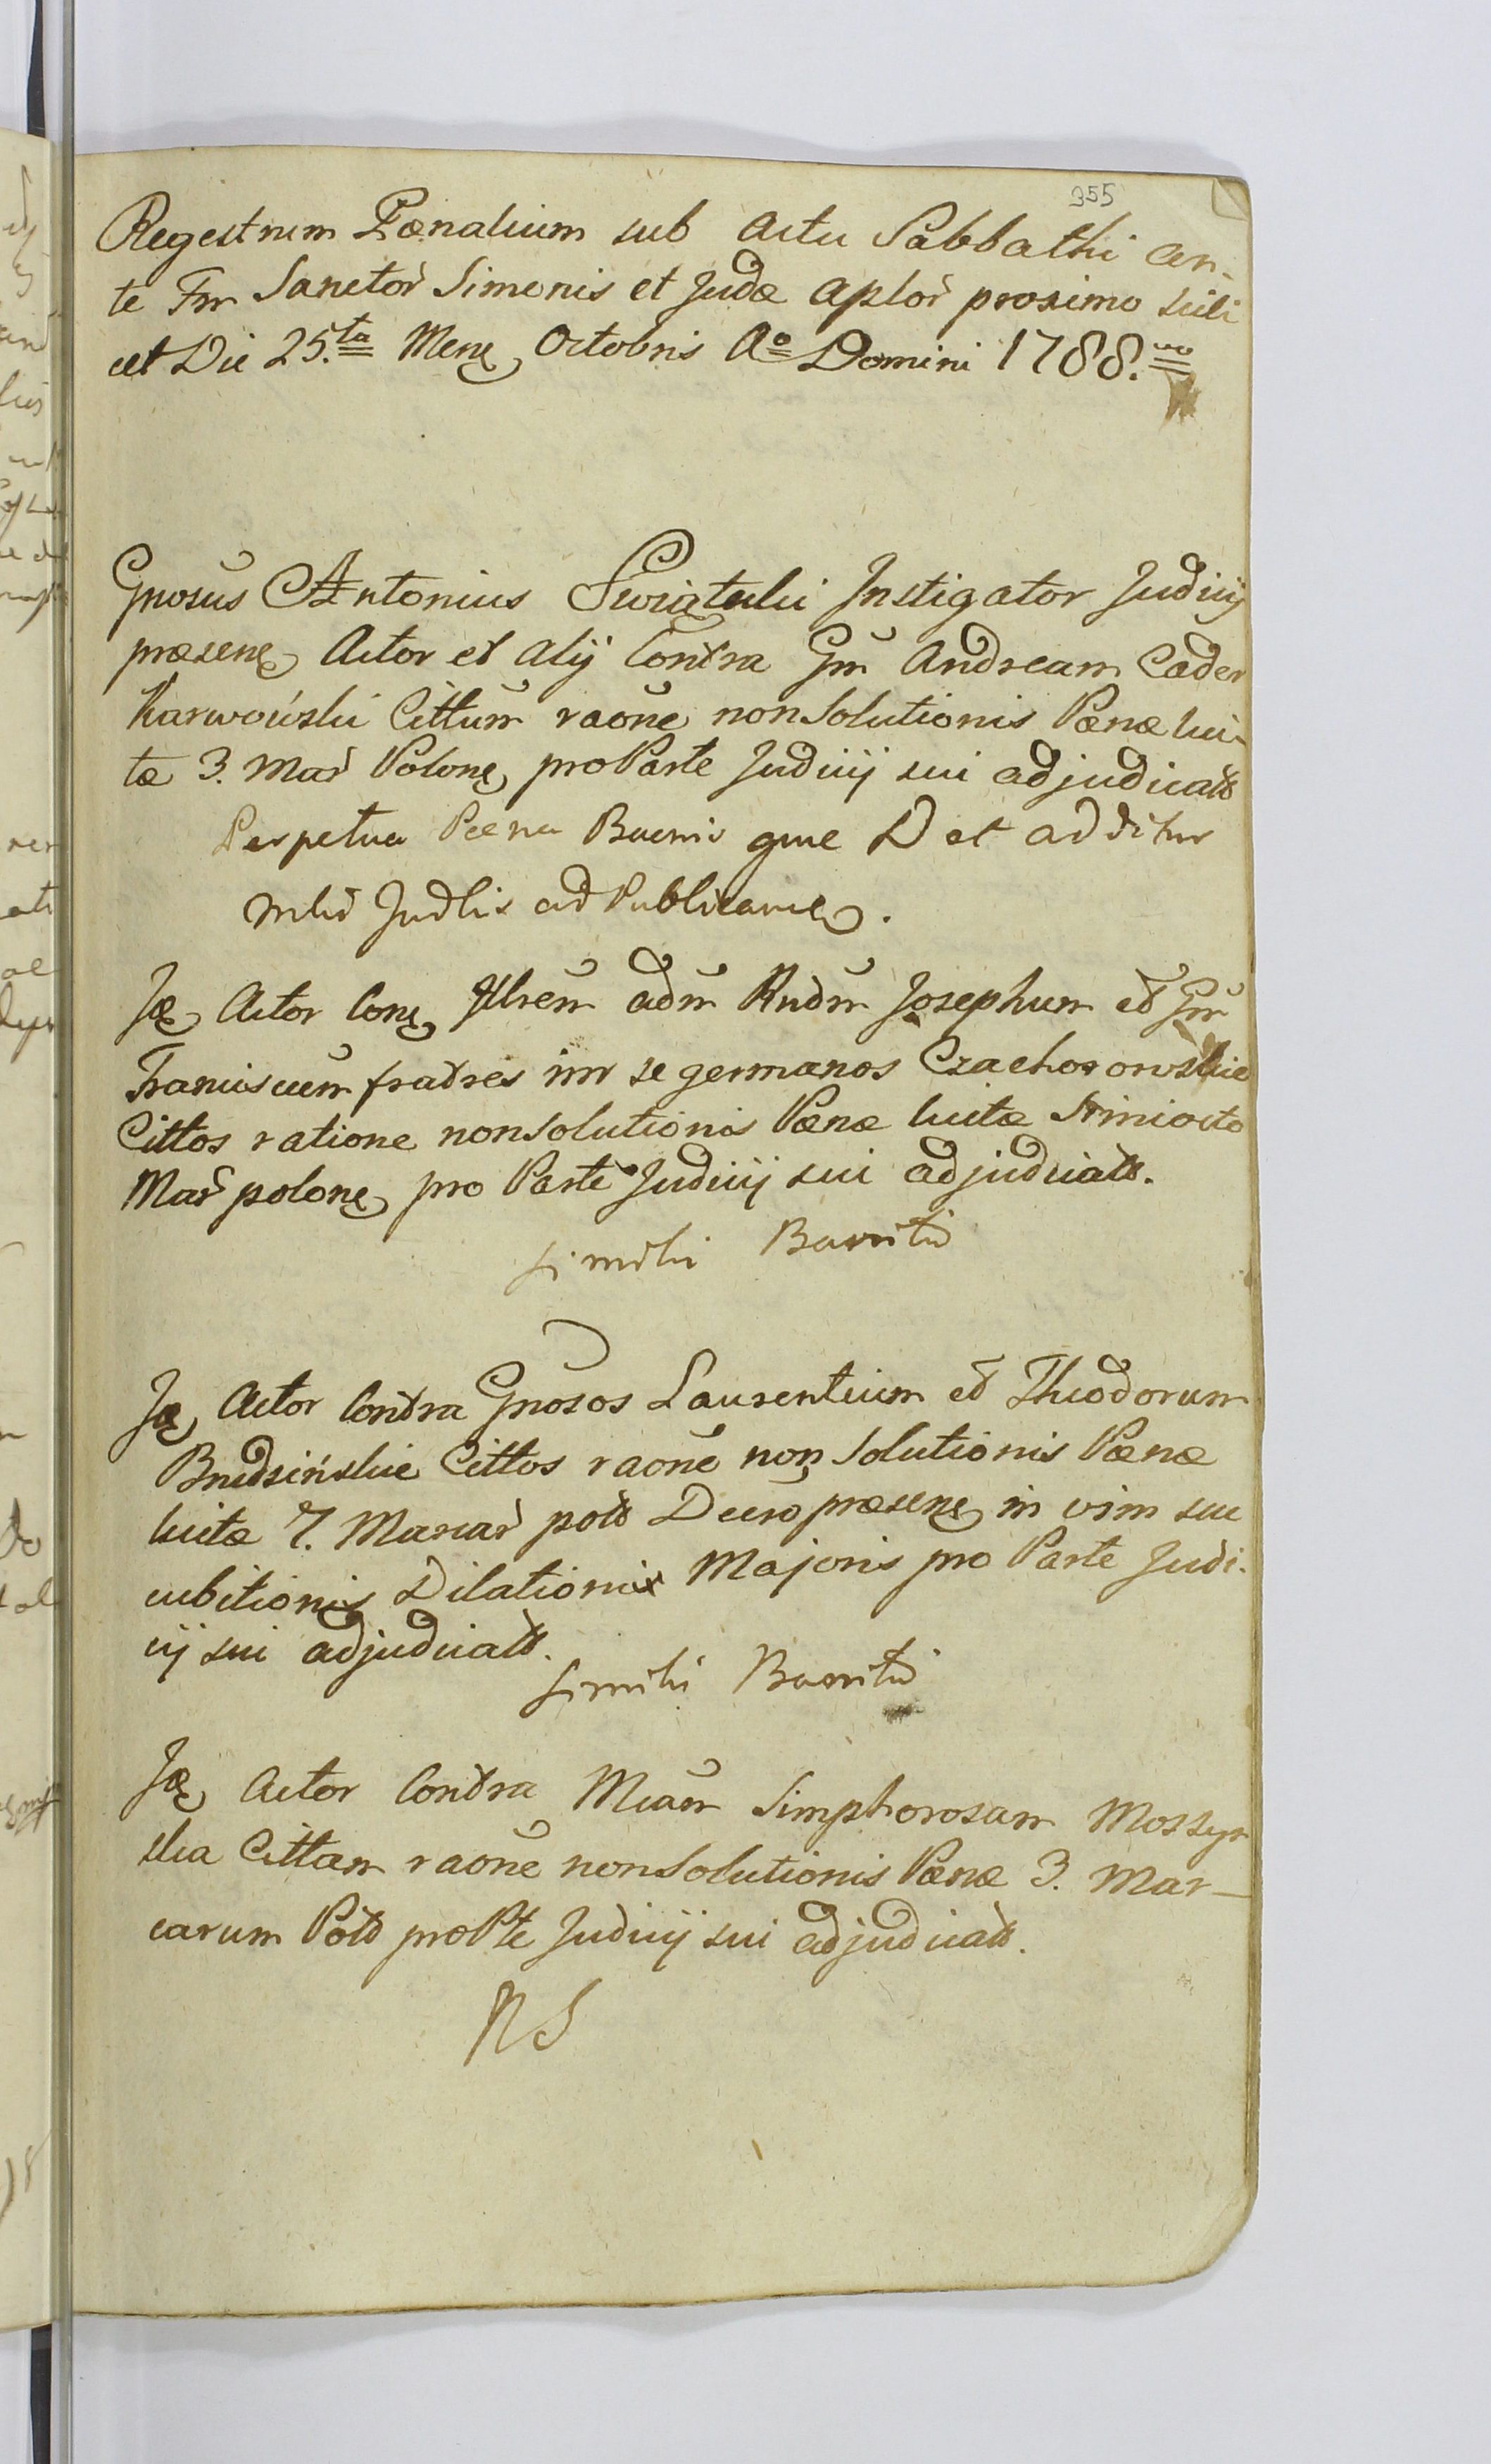 355
Regestrum Pænalium sub actu Sabbathi an-
te Fm Sanctor̃ Simonis et Judæ Aplor̃ proximo scili
cet Die 25.ta Mens Octobris Ao Domini 1788.vo
Gnosus Antonius Swiątecki Instigator Judicij
præsens Actor et alij Contra Gm̃ Andream Cader
Karwowski Cittum̃ raõne non solutionis Pænæ lui-
tæ 3. Mar̃ Polons pro Parte Judicij sui adjudicatt
Perpetua Pœna Bannis que D et additur
Mltd Judlis ad Publicand.
Is Actor Cons Illrem̃ adm̃ Rndm̃ Josephum et Gm̃
Franciscum fratres inr se germanos Czachorowskie
Cittos ratione non solutionis Pænæ luitæ
Mar̃ polons pro Parte Judicij sui adjudicatt.
Simili Bannitio
Is Actor Contra Gnosos Laurentium et Theodorum
Brudzińskie Cittos raõne non solutionis Pænæ
luitæ 7. Marcar̃ poltt Decro præsens in vim suc
cubitionis Dilationis Majoris pro Parte Judi-
cij sui adjudicatt.
Simili Bannitio
Is Actor Contra Mcam̃ Simphorosam Moszyn
ska Cittam raõne non solutionis Pænæ 3. Mar-
carum Poltt pro Pte Judicij sui adjudicatt.
NS